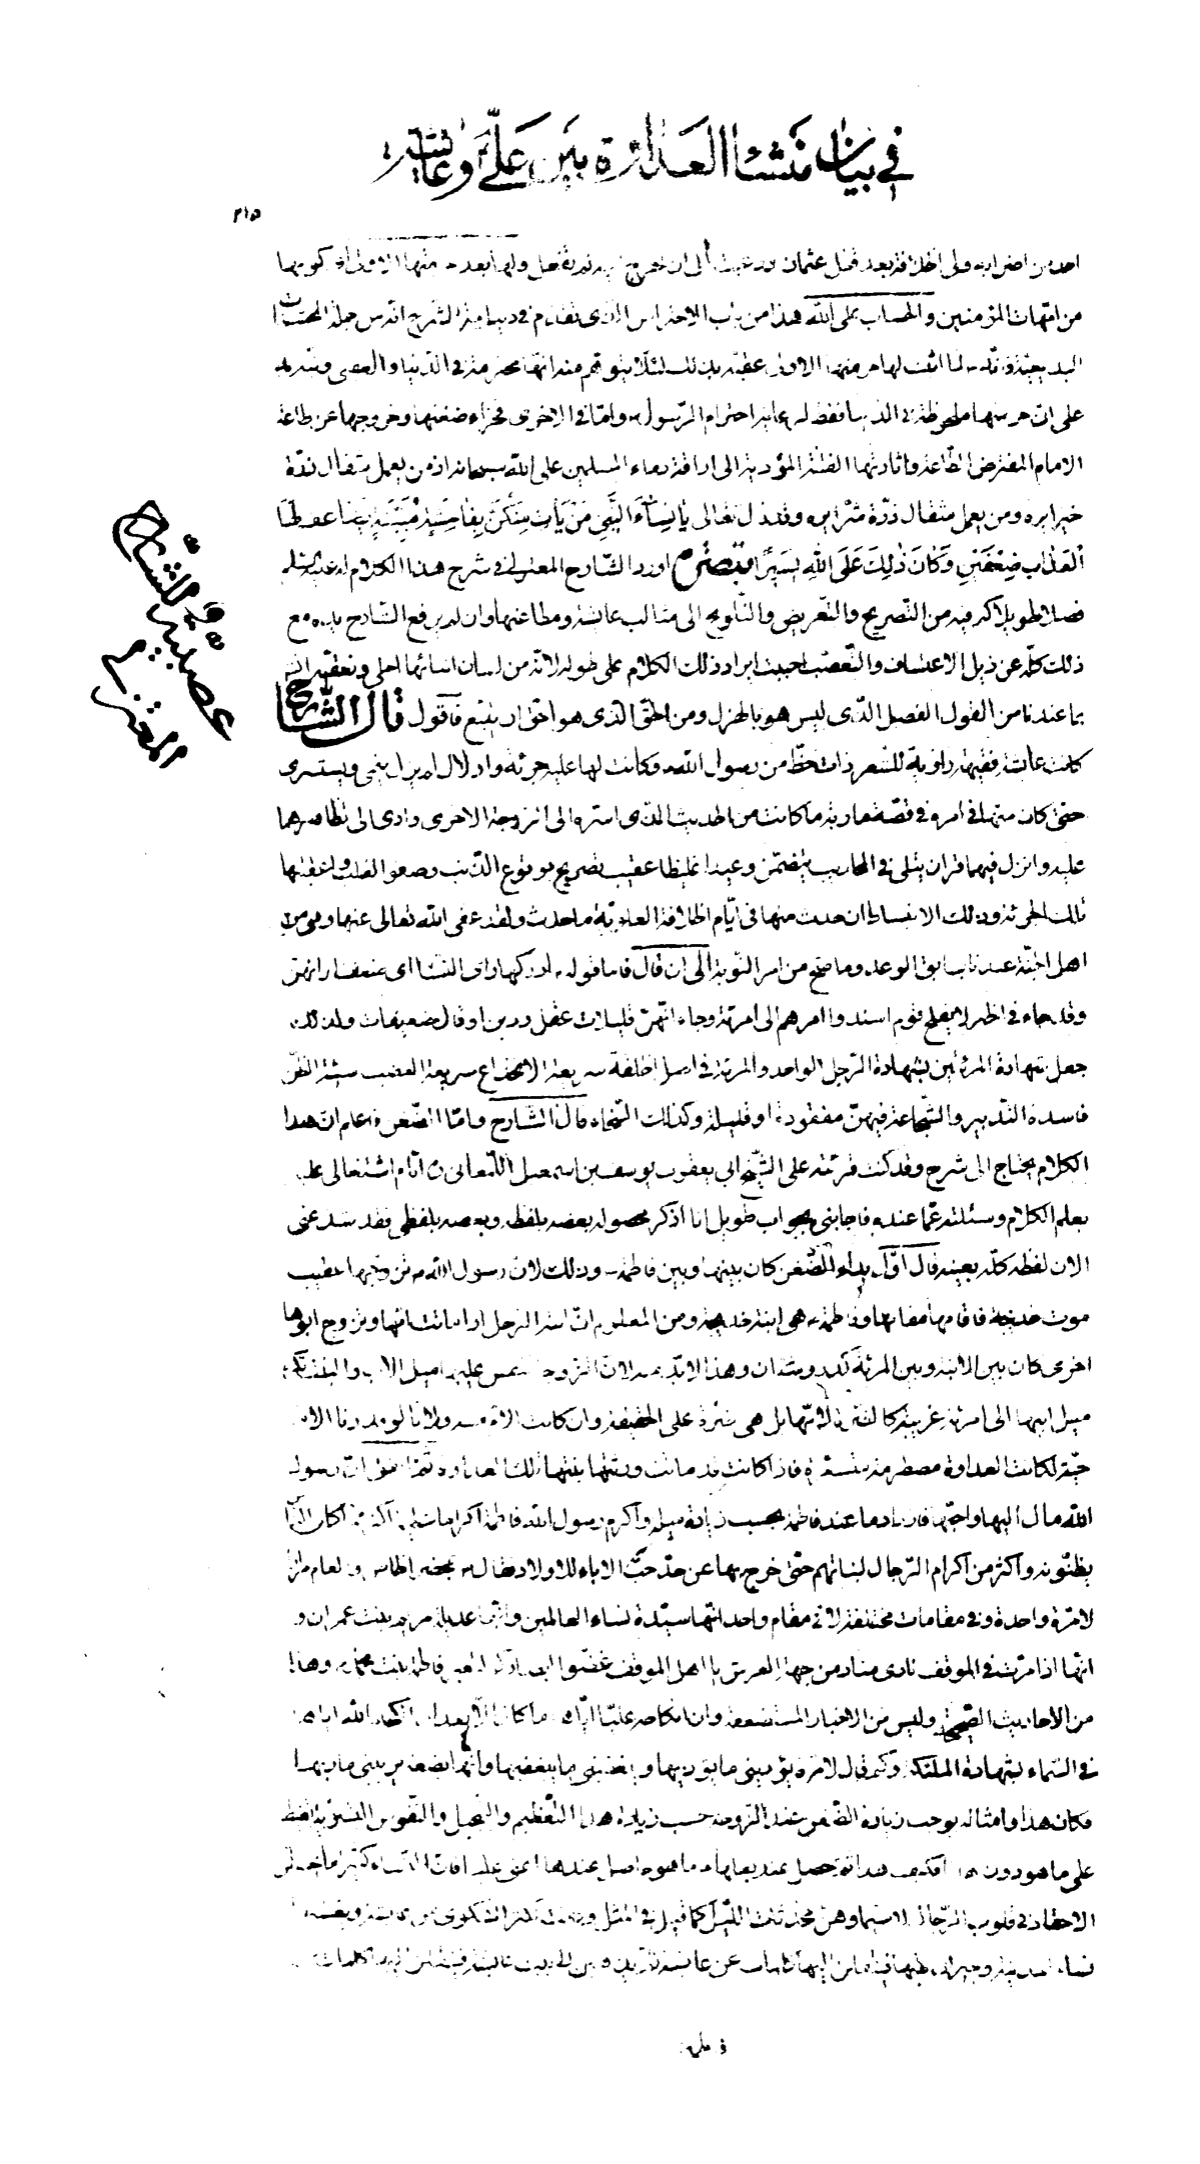 في بيان منشأ العداوة بين علي وعائشة
٢١٥
احد من اضرابه ولى الخلافة بعد قتل عثمان ودعيت الى ان تخرج اليه لم تفعل ولها بعد حرمتها الاولى اى كونها
من امّهات المؤمنين والحساب على الله هذا من باب الاحتراس الذى تقدّم فى ديباجة الشرح انه من جملة المحسّنات
البديعيّة فانّه لما اثبت لها حرمتها الاولى عقّبه بذلك لئلّا يتوهّم منه انها محترمة فى الدّنيا والعقبى
على انّ حرمتها ملحوظة فى الدنيا فقط لرعاية احترام الرّسول وامّا فى الاخرى فجزاء ضغنها وخروجها عن طاعة
الامام المفترض الطّاعة واثارتها الفتنة المؤدية الى اراقة دماء المسلمين على الله سبحانه اذ من يعمل مثقال ذرّة
خيرا يره ومن يعمل مثقال ذرّة شرّا يره وقد قال تعالى يَا نِسَاءَ النَّبِيِّ مَنْ يَأْتِ مِنْكُنَّ بِفَاحِشَةٍ مُبَيِّنَةٍ يُضَاعَفْ لَهَا
الْعَذَابُ ضِعْفَيْنِ وَكَانَ ذٰلِكَ عَلَى اللهِ يَسِيرًا تبصرة اورد الشّارح المعتزلى فى شرح هذا الكلام له عليه السّلم
فصلا طويلا اكثر فيه من التّصريح والتّعريض والتّلويح الى مثالب عائشة ومطاعنها وان لم يرفع الشارح يده مع
ذلك كلّه عن ذيل الاعتساف والتّعصّب احببت ايراد ذلك الكلام على طوله لانّه من لسان ابنائها احلى ونعقّبه
بما عندنا من القول الفصل الذى ليس هو بالهزل ومن الحقّ الذى هو احقّ ان يتّبع فاقول قال الشّارح
عصبيّة الشّارح
المعتزلى
كانت عائشة فقيهة راوية للشعر ذات حظّ من رسول الله وكانت لها عليه جرئة وادلال لم يزل ينمى ويستشرى
حتى كان منها فى امره فى قصّة مارية ما كانت من الحديث الذى اسرّه الى الزوجة الاخرى وادى الى تظاهرهما
عليه وانزل فيهما قران يتلى فى المحاريب يتضمّن وعيدا غليظا عقيب تصريح بوقوع الذّنب وصغو القلب واعقبتها
تلك الجرئة وذلك الانبساط ان حدث منها فى ايّام الخلافة العلويّة ما حدث ولقد عفى الله تعالى عنها وهى من
اهل الجنّة عندنا بسابق الوعد وما صحّ من امر التّوبة الى ان قال فاما قوله ادركها راى النساء اى ضعف ارائهن
وقد جاء فى الخبر لا يفلح قوم اسندوا امرهم الى امرئة وجاء انّهنّ قليلات عقل ودين او قال ضعيفات ولذلك
جعل شهادة المرئتين بشهادة الرّجل الواحد والمرئة فى اصل الخلقة سريعة الانخداع سريعة الغضب سيّئة الظّنّ
فاسدة التّدبير والشّجاعة فيهنّ مفقودة او قليلة وكذلك السّخاء قال الشّارح وامّا الضّغن فاعلم ان هذا
الكلام يحتاج الى شرح وقد كنت قرئته على الشّيخ ابى يعقوب يوسف بن اسمعيل اللّمعانى ره ايّام اشتغالى عليه
بعلم الكلام وسئلته عمّا عنده فاجابنى بجواب طويل انا اذكر محصوله بعضه بلفظه وبعضه بلفظى فقد شذ عنى
الان لفظه كلّه بعينه قال اوّل بداء الضّغن كان بينها وبين فاطمة وذلك لان رسول الله تزوّجها عقيب
موت خديجة فاقامها مقامها وفاطمة هى ابنة خديجة ومن المعلوم انّ ابنة الرجل اذا ماتت امّها وتزوج ابوها
اخرى كان بين الابنة وبين المرئة كدر وشنان وهذا لابدّ منه لانّ الزوجة تنفس عليها ميل الاب والبنت تكره
ميل ابيها الى امرئة غريبة كالضّرة لامّها بل هى ضرّة على الحقيقة وان كانت الامّ ميتة ولانا لو قدرنا الامّ
حيّة لكانت العداوة مضطرمة متسعّرة فاذا كانت قد ماتت ورثتها بنتها تلك العداوة ثمّ اتفق ان رسول
الله مال اليها واحبّها فازداد ما عند فاطمة بحسب زيادة ميله واكرم رسول الله فاطمة اكراما عظيما اكثر مما كان النّاس
يظنّونه واكثر من اكرام الرّجال لبناتهم حتى خرج بها عن حدّ حبّ الاباء للاولاد فقال بمحضر الخاص والعام مرارا
لا مرّة واحدة وفى مقامات مختلفة لا فى مقام واحد انّها سيّدة نساء العالمين وانّها عديلة مريم بنت عمران و
انّها اذا مرّت فى الموقف نادى مناد من جهة العرش يا اهل الموقف غضّوا ابصاركم لتعبر فاطمة بنت محمّد وهذا
من الاحاديث الصّحيحة وليس من الاخبار المستضعفة وان انكاحه عليّا ايّاها ما كان الّا بعد ان انكحه الله ايّاها
فى السّماء بشهادة الملئكة وكم قال لا مرّة يؤذينى ما يؤذيها ويغضبنى ما يغضبها وانّها بضعة منى يريبنى ما رابها
فكان هذا وامثاله يوجب زيادة الضّغن عند الزّوجة حسب زيادة هذا التّعظيم والتّبجيل والنّفوس البشريّة تغيظ
على ما هو دون هذا فكيف هذا ثمّ حصل عند بعلها ما هو حاصل عندها اعنى عليّا فانّ النّساء كثيرا ما يجعلن
الاحقاد فى قلوب الرّجال لا سيّما وهنّ محدّثات اللّيل كما قيل فى المثل وكانت تكثر الشّكوى من عائشة ويغشاها
نساء المدينة وجيران بيتها فينقلن اليها كلمات عن عائشة ثمّ يذهبن الى بيت عائشة فينقلن اليها كلمات